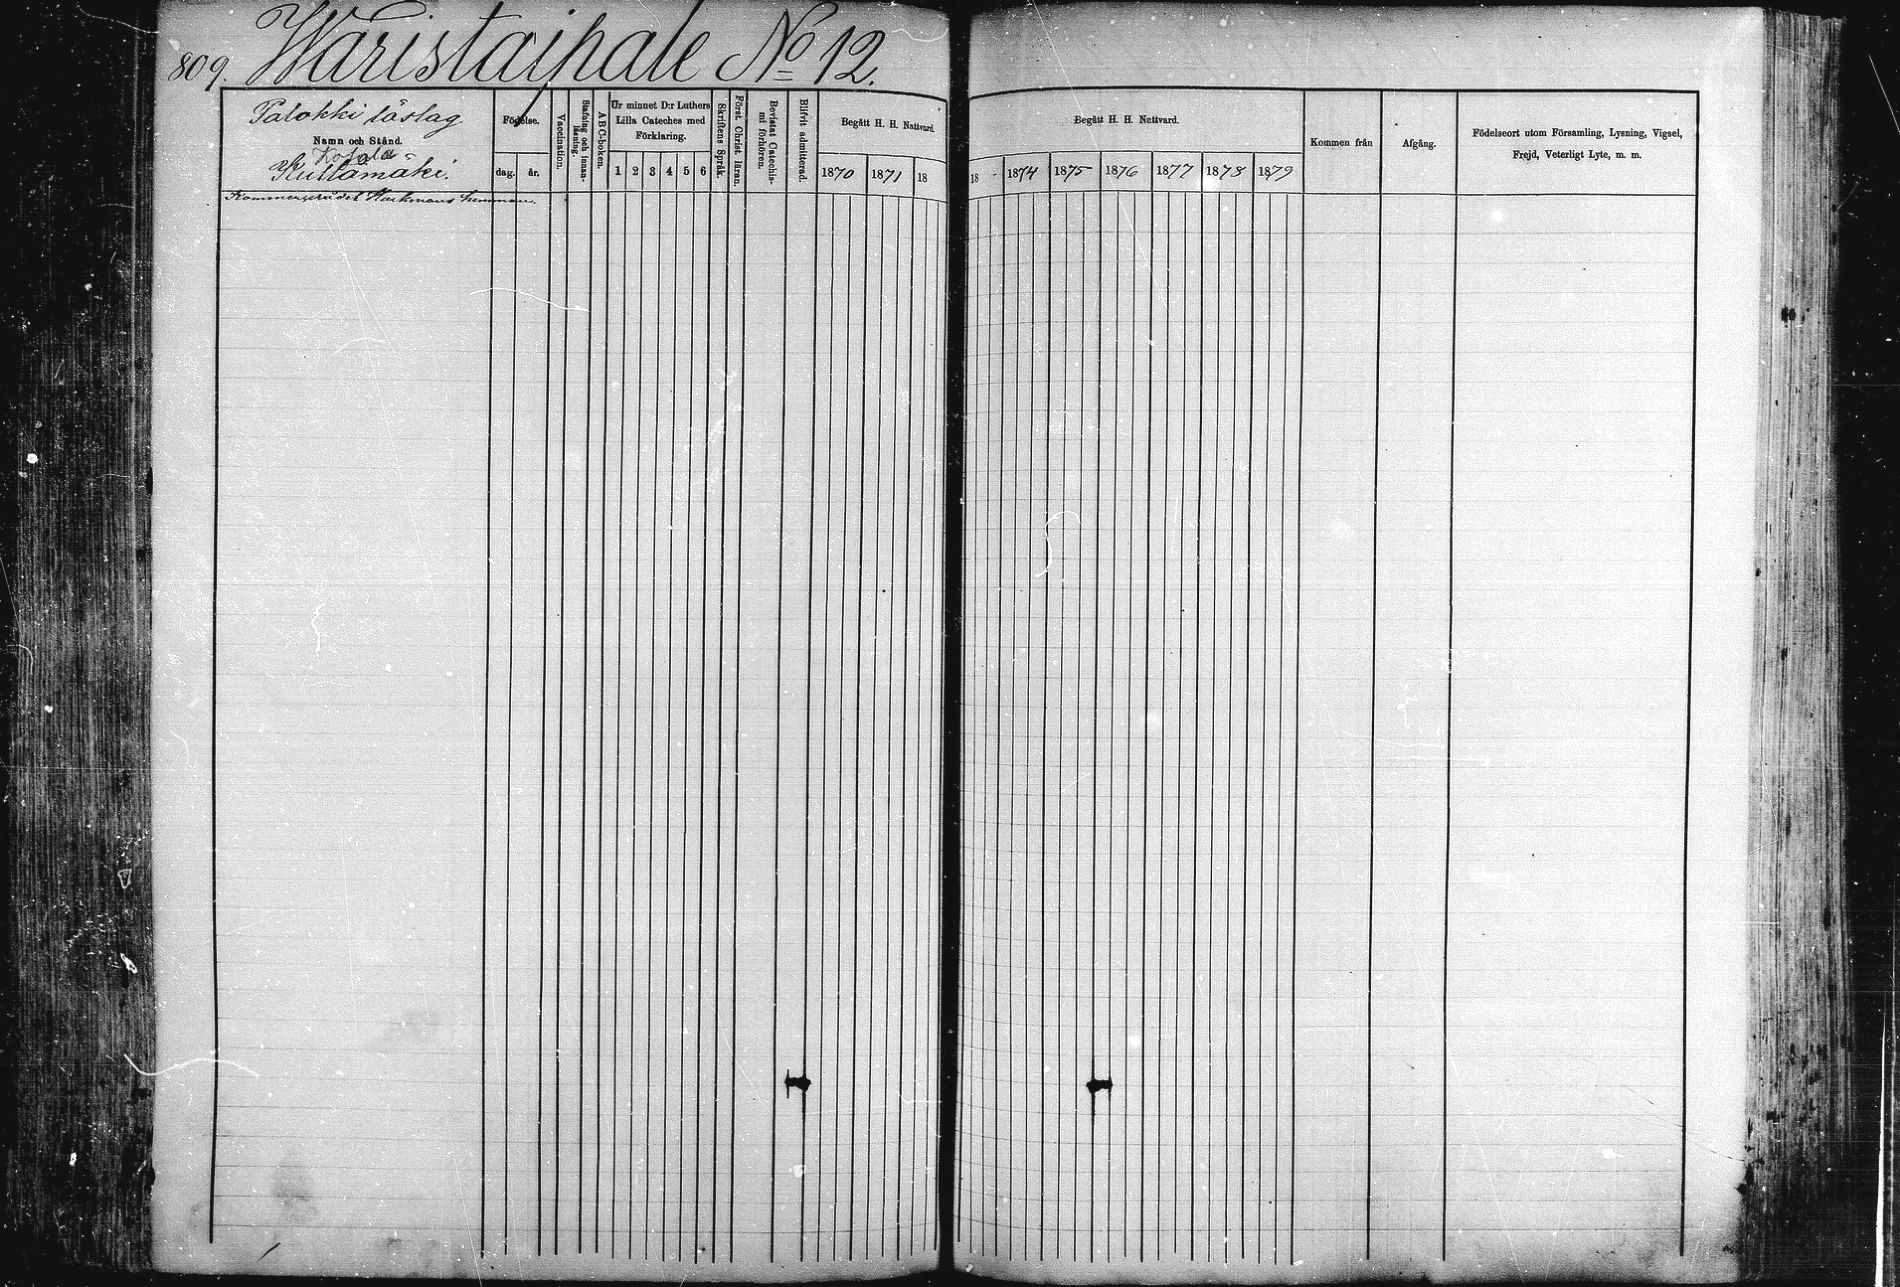 809. Waristaipale No 12.
Palokki läslag
Namn och Stånd.
Kotola
Kutlamäki.
Kommerserådet Hackmans hemman.
Födelse.
dag. år.
Vaccination.
Stafning och innan-
läsning.
A B C-boken.
Ur minnet D:r Luthers
Lilla Cateches med
Förklaring.
1 2 3 4 5 6
Skriftens Språk.
Först. Christ. läran.
Bevistat Catechis-
mi förhören.
Blifvit admitterad.
Begått H. H. Nattvard.
1870 1871 18
Begått H. H. Nattvard.
18 - 1874 1875 1876 1877 1878 1879
Kommen från
Afgång.
Födelseort utom Församling, Lysning, Vigsel,
Frejd, Veterligt Lyte, m. m.